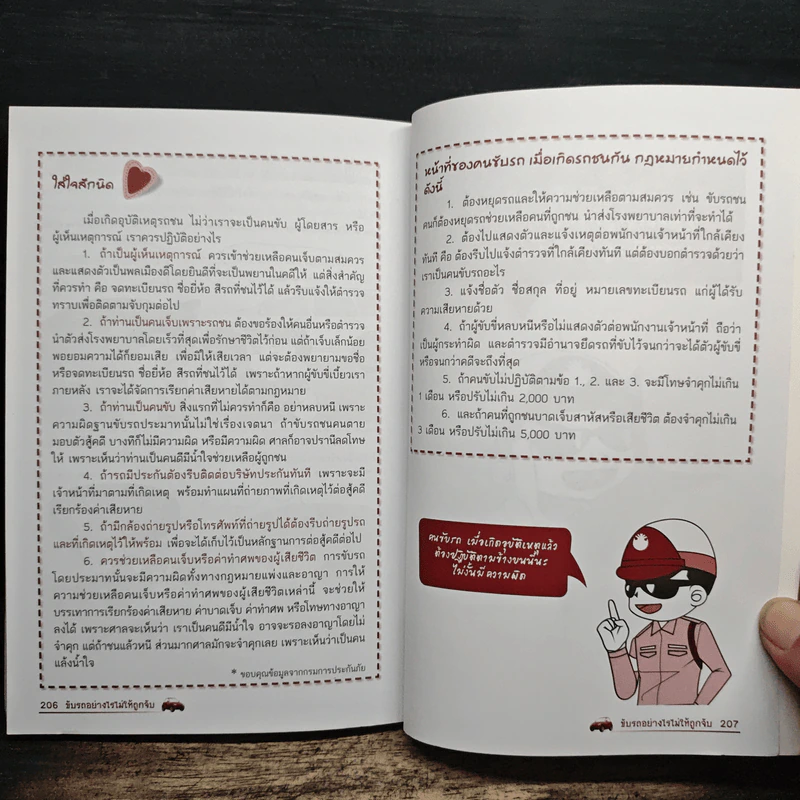 ใส่ใจสักนิด
เมื่อเกิดอุบัติเหตุรถชน ไม่ว่าเราจะเป็นคนขับ ผู้โดยสาร หรือ
ผู้เห็นเหตุการณ์ เราควรปฏิบัติอย่างไร
1. ถ้าเป็นผู้เห็นเหตุการณ์ ควรเข้าช่วยเหลือคนเจ็บตามสมควร
และแสดงตัวเป็นพลเมืองดีโดยยินดีที่จะเป็นพยานในคดีให้ แต่สิ่งสำคัญ
ที่ควรทำ คือ จดทะเบียนรถ ชื่อยี่ห้อ สีรถที่ชนไว้ได้ แล้วรีบแจ้งให้ตำรวจ
ทราบเพื่อติดตามจับกุมต่อไป
2. ถ้าท่านเป็นคนเจ็บเพราะรถชน ต้องขอร้องให้คนอื่นหรือตำรวจ
นำตัวส่งโรงพยาบาลโดยเร็วที่สุดเพื่อรักษาชีวิตไว้ก่อน แต่ถ้าเจ็บเล็กน้อย
พอยอมความได้ก็ยอมเสีย เพื่อมิให้เสียเวลา แต่จะต้องพยายามขอชื่อ
หรือจดทะเบียนรถ ชื่อยี่ห้อ สีรถที่ชนไว้ได้ เพราะถ้าหากผู้ขับขี่เบี้ยวเรา
ภายหลัง เราจะได้จัดการเรียกค่าเสียหายได้ตามกฎหมาย
3. ถ้าท่านเป็นคนขับ สิ่งแรกที่ไม่ควรทำก็คือ อย่าหลบหนี เพราะ
ความผิดฐานขับรถประมาทนั้นไม่ใช่เรื่องเจตนา ถ้าขับรถชนคนตาย
มอบตัวสู้คดี บางทีก็ไม่มีความผิด หรือมีความผิด ศาลก็อาจปรานีลดโทษ
ให้ เพราะเห็นว่าท่านเป็นคนดีมีน้ำใจช่วยเหลือผู้ถูกชน
4. ถ้ารถมีประกันต้องรีบติดต่อบริษัทประกันทันที เพราะจะมี
เจ้าหน้าที่มาตามที่เกิดเหตุ พร้อมทำแผนที่ถ่ายภาพที่เกิดเหตุไว้ต่อสู้คดี
เรียกร้องค่าเสียหาย
5. ถ้ามีกล้องถ่ายรูปหรือโทรศัพท์ที่ถ่ายรูปได้ต้องรีบถ่ายรูปรถ
และที่เกิดเหตุไว้ให้พร้อม เพื่อจะได้เก็บไว้เป็นหลักฐานการต่อสู้คดีต่อไป
6. ควรช่วยเหลือคนเจ็บหรือค่าทำศพของผู้เสียชีวิต การขับรถ
โดยประมาทนั้นจะมีความผิดทั้งทางกฎหมายแพ่งและอาญา การให้
ความช่วยเหลือคนเจ็บหรือค่าทำศพของผู้เสียชีวิตเหล่านี้ จะช่วยให้
บรรเทาการเรียกร้องค่าเสียหาย ค่าบาดเจ็บ ค่าทำศพ หรือโทษทางอาญา
ลงได้ เพราะศาลจะเห็นว่า เราเป็นคนดีมีน้ำใจ อาจจะรอลงอาญาโดยไม่
จำคุก แต่ถ้าชนแล้วหนี ส่วนมากศาลมักจะจำคุกเลย เพราะเห็นว่าเป็นคน
แล้งน้ำใจ
* ขอบคุณข้อมูลจากกรมการประกันภัย
206 ขับรถอย่างไรไม่ให้ถูกจับ
หน้าที่ของคนขับรถ เมื่อเกิดรถชนกัน กฎหมายกำหนดไว้
ดังนี้
1. ต้องหยุดรถและให้ความช่วยเหลือตามสมควร เช่น ขับรถชน
คนก็ต้องหยุดรถช่วยเหลือคนที่ถูกชน นำส่งโรงพยาบาลเท่าที่จะทำได้
2. ต้องไปแสดงตัวและแจ้งเหตุต่อพนักงานเจ้าหน้าที่ใกล้เคียง
ทันที คือ ต้องรีบไปแจ้งตำรวจที่ใกล้เคียงทันที แต่ต้องบอกตำรวจด้วยว่า
เราเป็นคนขับรถอะไร
3. แจ้งชื่อตัว ชื่อสกุล ที่อยู่ หมายเลขทะเบียนรถ แก่ผู้ได้รับ
ความเสียหายด้วย
4. ถ้าผู้ขับขี่หลบหนีหรือไม่แสดงตัวต่อพนักงานเจ้าหน้าที่ ถือว่า
เป็นผู้กระทำผิด และตำรวจมีอำนาจยึดรถที่ขับไว้จนกว่าจะได้ตัวผู้ขับขี่
หรือจนกว่าคดีจะถึงที่สุด
5. ถ้าคนขับไม่ปฏิบัติตามข้อ 1., 2. และ 3. จะมีโทษจำคุกไม่เกิน
1 เดือน หรือปรับไม่เกิน 2,000 บาท
6. และถ้าคนที่ถูกชนบาดเจ็บสาหัสหรือเสียชีวิต ต้องจำคุกไม่เกิน
3 เดือน หรือปรับไม่เกิน 5,000 บาท
คนขับรถ เมื่อเกิดอุบัติเหตุแล้ว
ต้องปฏิบัติตามข้างบนนี้นะ
ไม่งั้นมีความผิด
ขับรถอย่างไรไม่ให้ถูกจับ 207